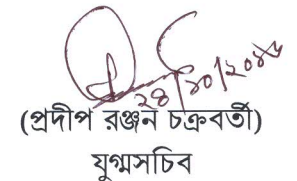 ২৪/১০/২০১৬
(প্রদীপ রঞ্জন চক্রবর্তী)
যুগ্মসচিব